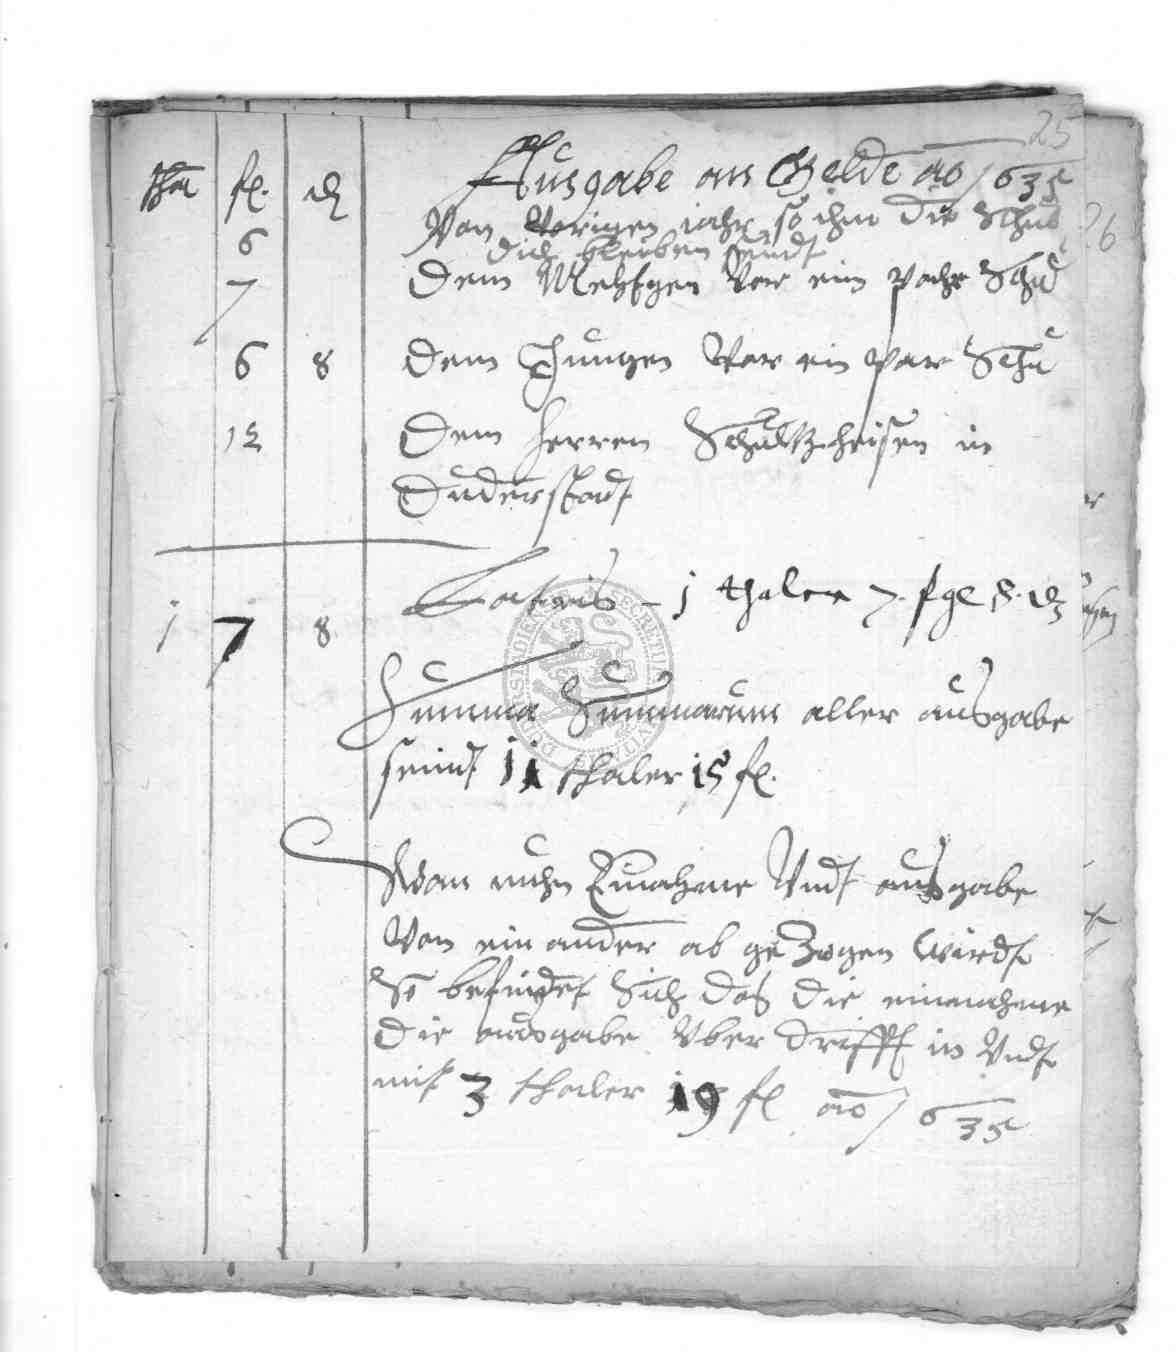 25
thar fl. ₰ Ausgabe an Gelde ao 1635
Von Vorigen iahr so ihm die Schu
6 dich bleiben seindt
7 Dem Metzgen Vor ein pahr Schu
6 8 Dem Jungen Vor ein par Schu
12 Dem Herren Schultzheisen in
Duderstadt
Lateris – j thaler 7. sgl 8. ₰
j 7 8
Summa Summarum aller ausgabe
seindt 11 thaler 15 fl.
Wan nuhn Einahme Undt ausgabe
Von einander ab gezogen wirdt
So befindet Sich das die einnahme
die ausgabe Uber trifft in Undt
mit 3 thaler 19 fl ao 1635
26